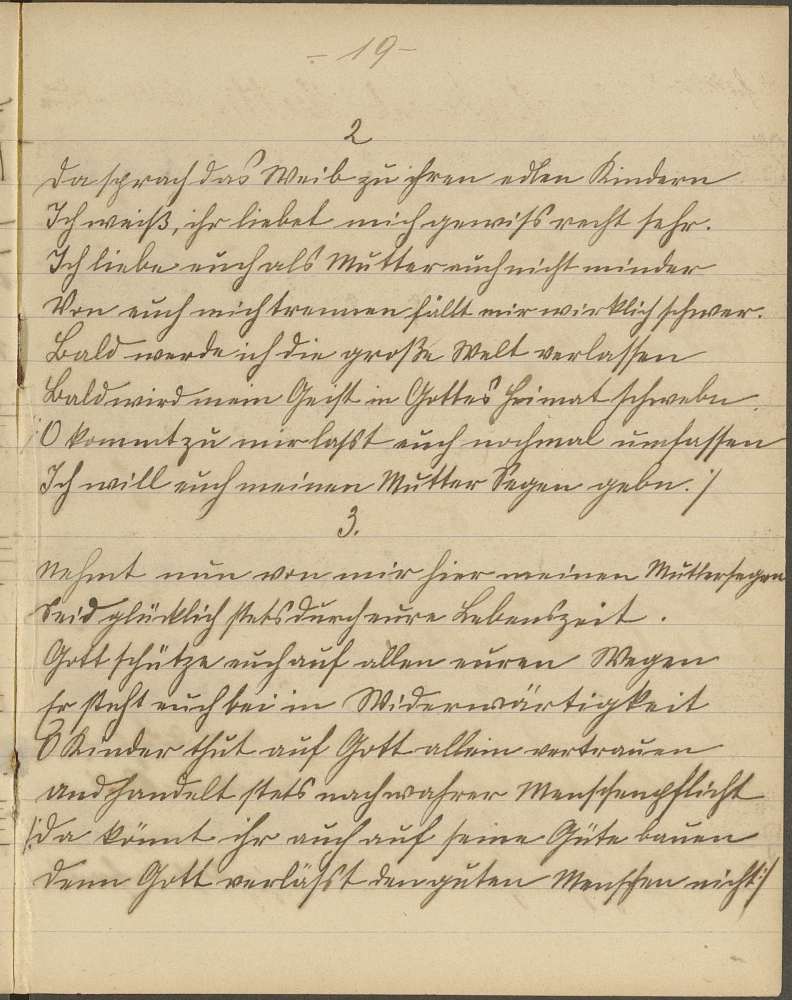 - 19 -
2
Da sprach das Weib zu ihren edlen Kindern
Ich weiß, ihr liebet mich gewiß recht sehr.
Ich liebe euch als Mutter auch nicht minder
Von euch mich trennen fällt mir wirklich schwer.
Bald werde ich die große Welt verlassen
Bald wird mein Geist in Gottes Heimat schwebn
/: O kommt zu mir laßt euch nochmal umfassen
Ich will euch meinen Mutter Segen gebn. :/
3.
Nehmt nun von mir hier meinen Muttersegen
Seid glücklich stets durch eure Lebenszeit.
Gott schütze euch auf allen euren Wegen
Er steht euch bei in Widerwärtigkeit
O Kinder thut auf Gott allein vertrauen
und handelt stets nach wahrer Menschenpflicht
/: Da könnt ihr auch auf seine Güte bauen
denn Gott verläßt den guten Menschen nicht :/